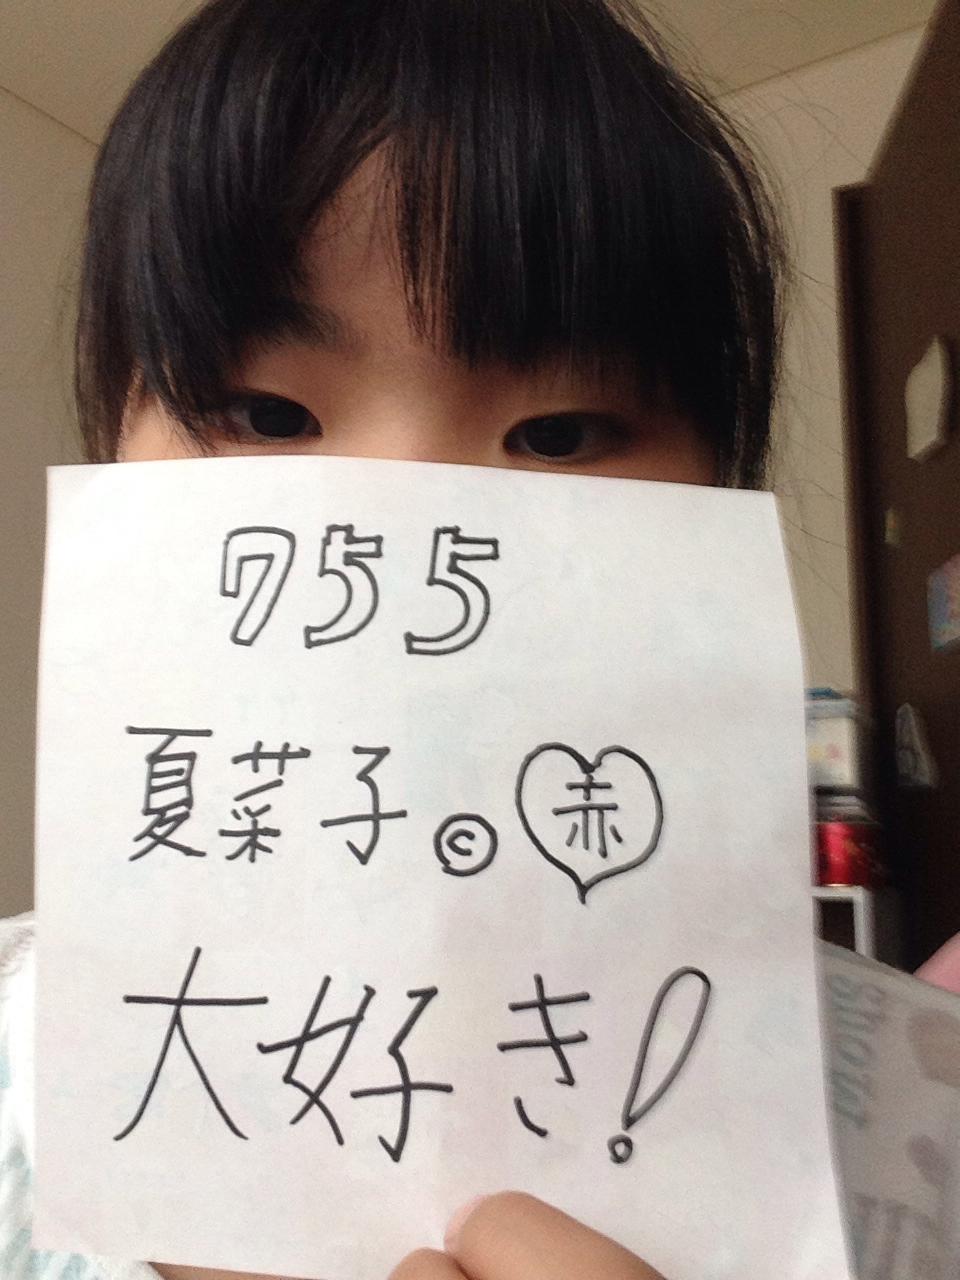 755
夏菜子©赤
大好き!